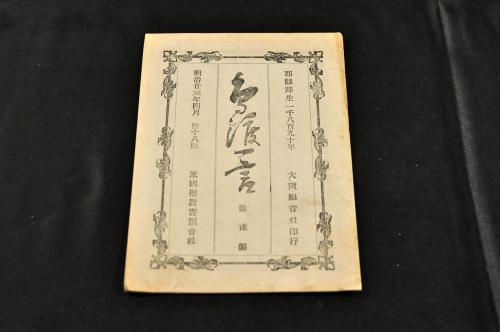 耶穌降生一千八百九十年
大阪福音社印行
鳥渡一言
第貳編
明治廿三年四月
第十八版
米國聖教書類會社